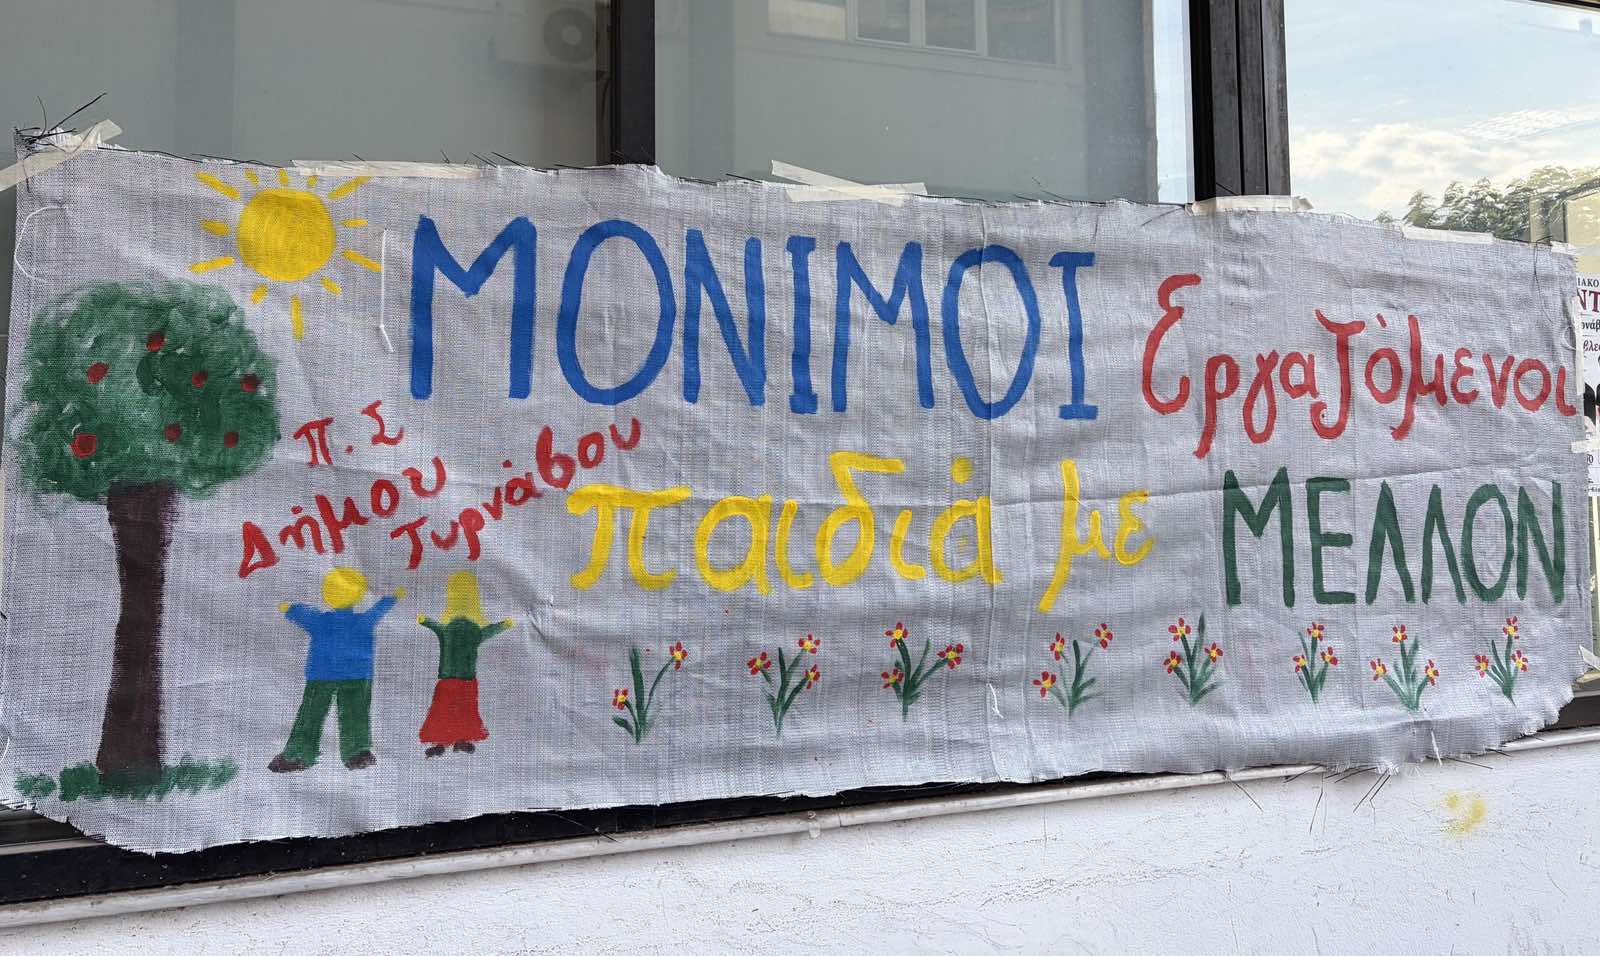 ΜΟΝΙΜΟΙ Εργαζόμενοι
Π.Σ
Δήμου
Τυρνάβου
παιδιά με ΜΕΛΛΟΝ